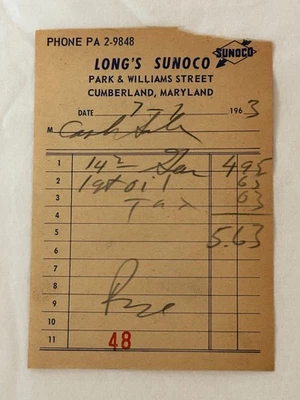 PHONE PA 2-9848
SUNOCO
LONG'S SUNOCO
PARK & WILLIAMS STREET
CUMBERLAND, MARYLAND
DATE 7-7 1963
M Cash Sale
1 14² Gas 495
2 1qt oil 63
3 Tax 03
4
5 5.63
6
7
8
9
10
11 48